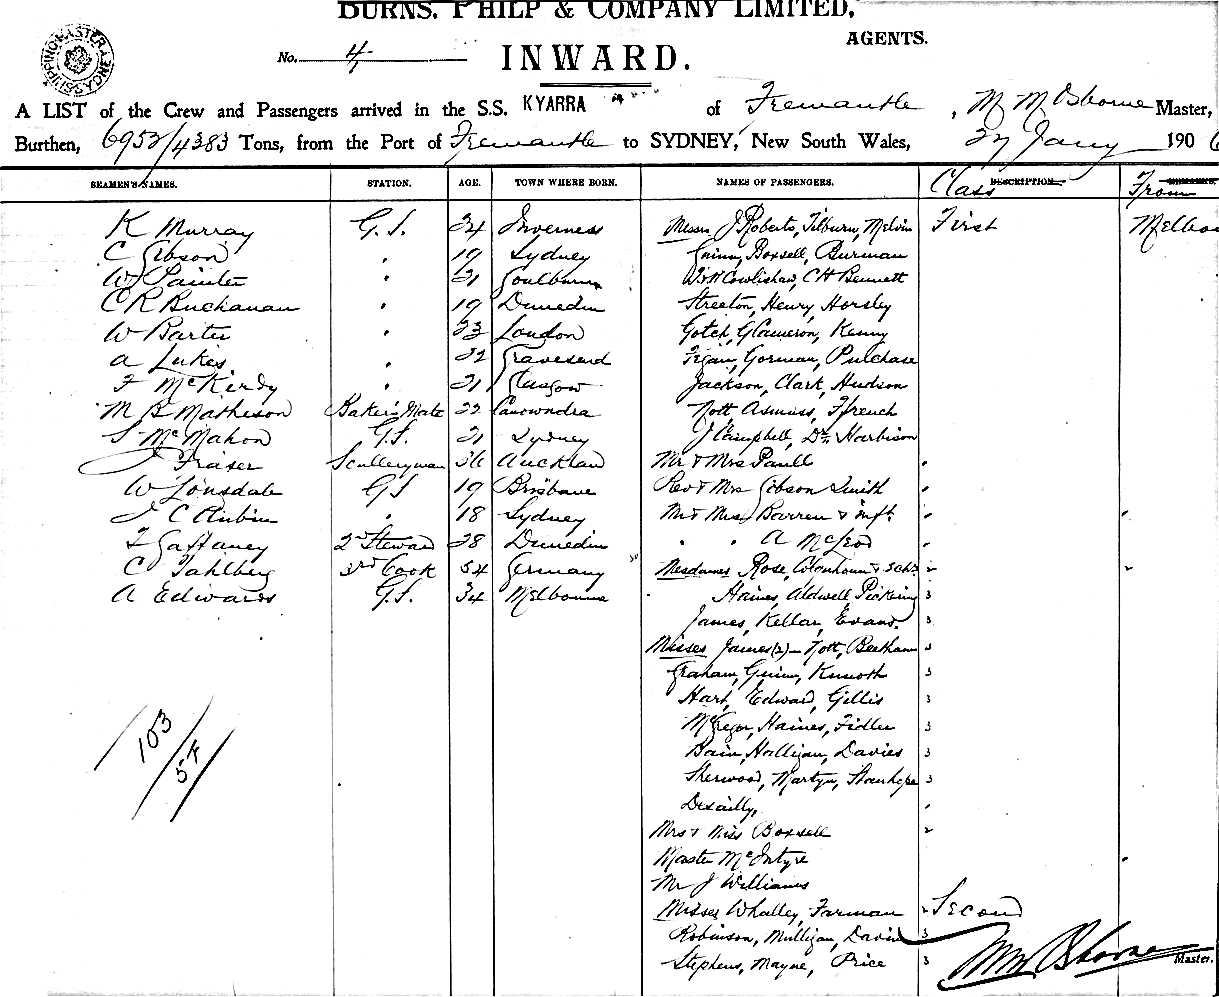 BURNS, PHILP & COMPANY LIMITED,
AGENTS.
SHIPPING MASTER SYDNEY
No. 4
INWARD.
A LIST of the Crew and Passengers arrived in the S.S. KYARRA of Fremantle, Osborne Master,
Burthen, 6953/4383 Tons, from the Port of Fremantle to SYDNEY, New South Wales, 27 Jany 190
SEAMEN'S NAMES. STATION. AGE. TOWN WHERE BORN. NAMES OF PASSENGERS. Class DESCRIPTION. From REMARKS.
K Murray G.S. 34 Inverness Messrs J Roberts, Tilburn, Melvin First Melbo
C Gibson " 19 Sydney Guinn, Boxsell, Burman
W Painter " 21 Goulburn Cowlishaw, C H Bennett
C R Buchanan " 19 Dunedin Streeton, Henry, Horsley
W Barter " 23 London Gotch, G Cameron, Kenny
A Lukes " 22 Gravesend Gorman, Pulchase
F McKirdy " 21 Glasgow Jackson, Clark, Hudson
M B Matheson Baker's Mate 22 Canowndra Nott, Asmuss, Ffrench
S McMahon G.S. 21 Sydney J Campbell, Dr Harbison
J Fraser Sculleryman 36 Aucklan Mr & Mrs Paull "
W Lonsdale G S 19 Brisbane Rev & Mrs Gibson Smith "
J C Aubin " 18 Sydney Mr & Mrs Barren & inft " "
T Gaffaney 2nd Stewar 28 Dunedin " " A McLeod "
C Tahlberg 3rd Cook 54 Germany Mesdames Rose,
A Edwards G.S. 34 Melbourne Haines, Aldwell Pickering
James, Kellar, Evans.
Misses James (2) Nott, Beetham
Graham, Guinn,
Hart, Edward, Gillis
McGregor, Haines, Fidler
Bain, Halligan, Davies
Sherwood, Martyn, Stanhope
Desailly,
103
54
Mrs & Miss Boxsell
Master McIntyre "
Mr J Williams
Misses Whalley, Farman Second
Robinson, Mulligan, David
Stephens, Mayne, Price Osborne Master.